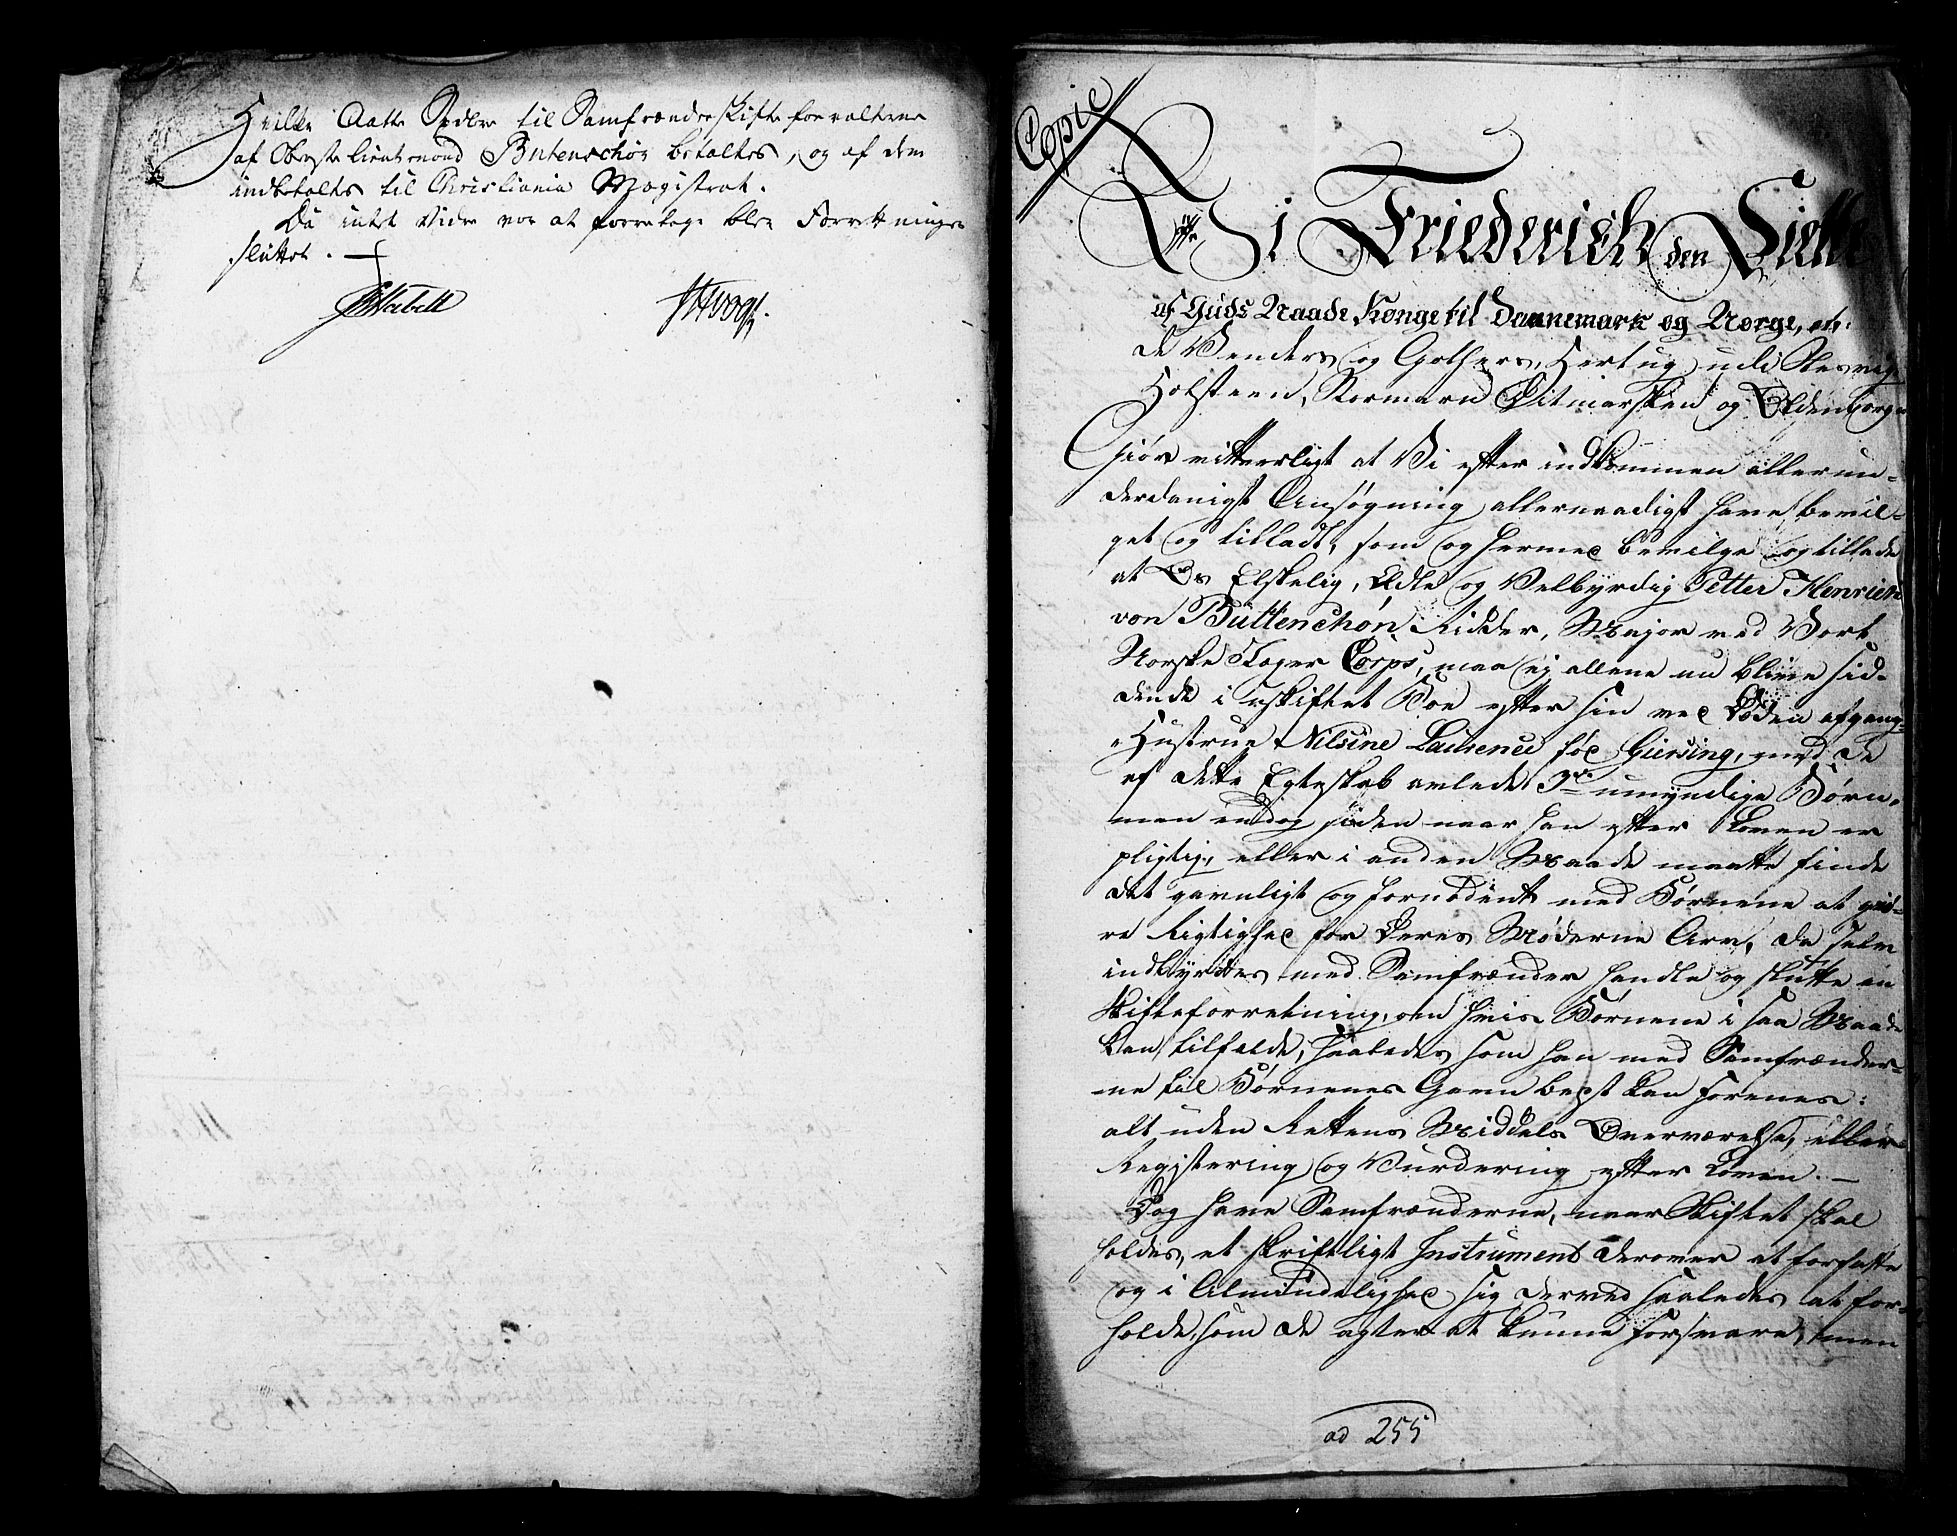 Hvilke Aatte Spdlr til Samfrænderskifteforvalterne
af Obrist lieutenand Butenschøn betaltes, og af dem
indbetaltes til Christiania Magistrat.
Da intet videre var at foretage blev Forretningen
sluttet.
Copie
Vi Friederich den Siette
af Guds Naade Konge til Dannemark og Norge,
de Venders og Gothers, Hertug udi Slesvig
Holsteen, Stormarn Ditmarsken og Oldenborg
Giøre vitterligt at Vi efter indkommen allerun-
derdanigst Ansøgning allernaadigst have bevil-
get og tilladt, som og hermed bevilge og tillade
at Os Elskelig, Ædle og Velbyrdig Petter Henrich
von Büttenchøn Ridder, Major ved Vort
Norske Jæger Corps, maa ej allene nu blive sid-
dende i uskiftet Boe efter sin ved Døden afgang-
Hustrue Nilsine Laurence fød Giersing, med de
af dette Egteskab avlede 3de umyndige Børn,
men endog siden naar han efter Loven er
pligtig, eller i anden Maade maatte finde
det gavnligt og fornødent med Børnene at giø-
re Rigtighed for deres Møderne Arv, da selv
indbyrdes med Samfrænder handle og slutte en
Skifteforretning, om hvis Børnene i saa Maade
kan tilfalde, saaledes som han med Samfrænder-
ne til Børnenes Gavn bedst kan forenes:
alt uden Rettens Middels Overværelse, eller
Registering og Vurdering efter Loven. -
Dog have Samfrænderne, naar Skiftet skal
holdes, et skriftligt Instrument derover at forfatte
og i Almindelighed sig dermed saaledes at for-
holde, som de agter at kunne forsvare, men
ad 255